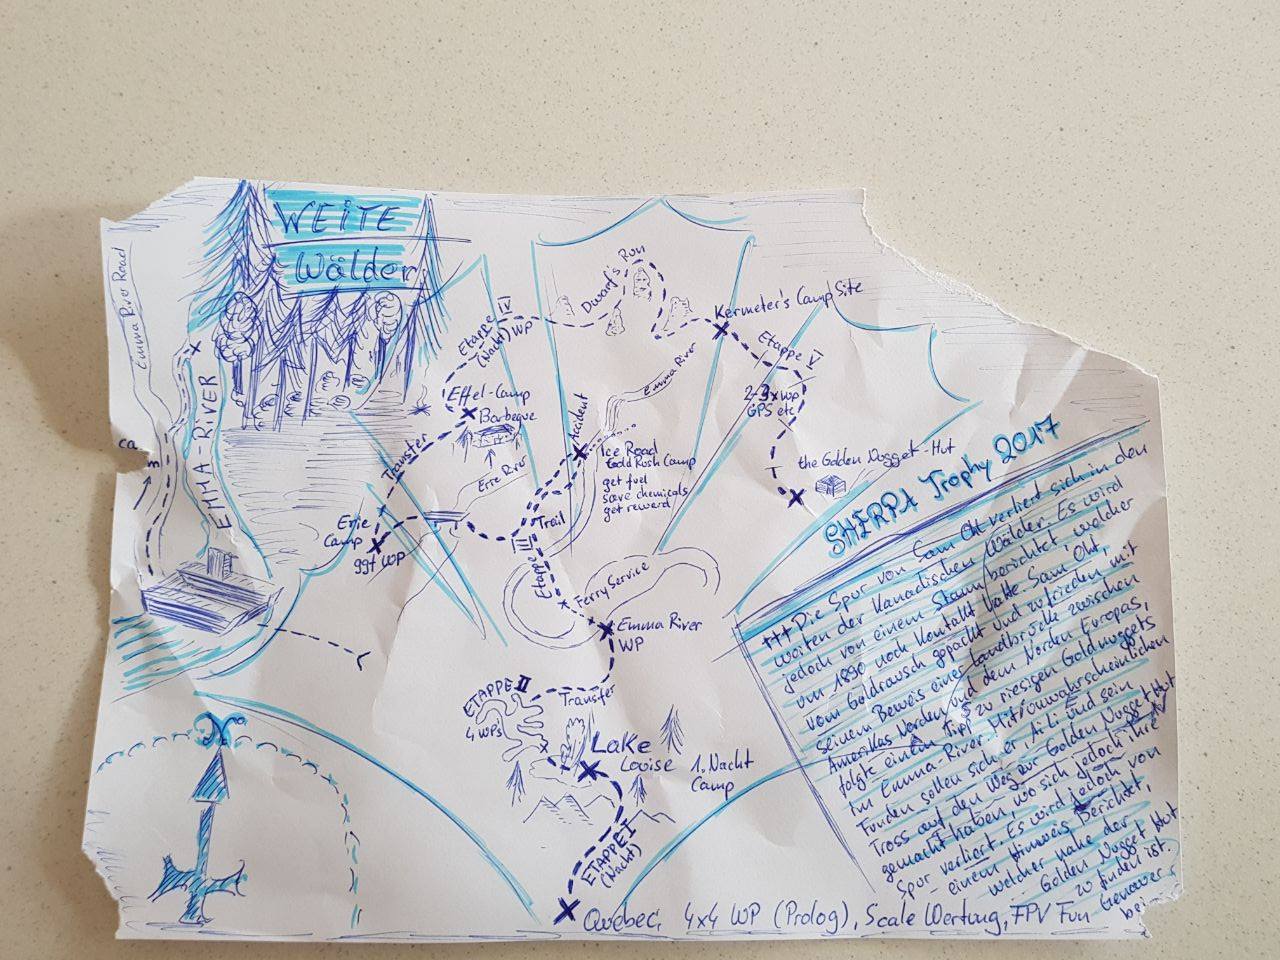 WEITE
Wälder
Emma River Road
EMMA-RIVER
ca.
Etappe IV
(Nacht) WP
Dwarf's Run
Kermeter's Camp Site
Etappe V
2-3x WP
GPS etc
the Golden Nugget-Hut
Effel-Camp
Barbeque
Transfer
Erie River
Erie
Camp
ggf WP
Accident
Emma River
Ice Road
Gold Rush Camp
get fuel
save chemicals
get reward
Trail
Etappe III
Ferry Service
Emma River
WP
ETAPPE II
4 WPs
Transfer
Lake
Louise
1. Nacht
Camp
ETAPPE I
(Nacht)
N
Quebec, 4x4 WP (Prolog), Scale Wertung, FPV Fun
SHERPA Trophy 2017
+++ Die Spur von Sam Oht verliert sich in den
weiten der Kanadischen Wälder. Es wird
jedoch von einem Stamm berichtet welcher
um 1890 noch Kontakt hatte. Sam Oht,
vom Goldrausch gepackt und zufrieden mit
seinem Beweis einer Landbrücke zwischen
Amerikas Norden und dem Norden Europas,
folgte einem Tip zu riesigen Goldnuggets
im Emma-River. Mit unwahrscheinlichen
Funden sollen sich er, und sein
Tross auf den Weg zur Golden Nugget Hut
gemacht haben, wo sich jedoch ihre
Spur verliert. Es wird jedoch von
einem Hinweis Berichtet,
welcher nahe der
Golden Nugget Hut
zu finden ist.
Genauer
bei